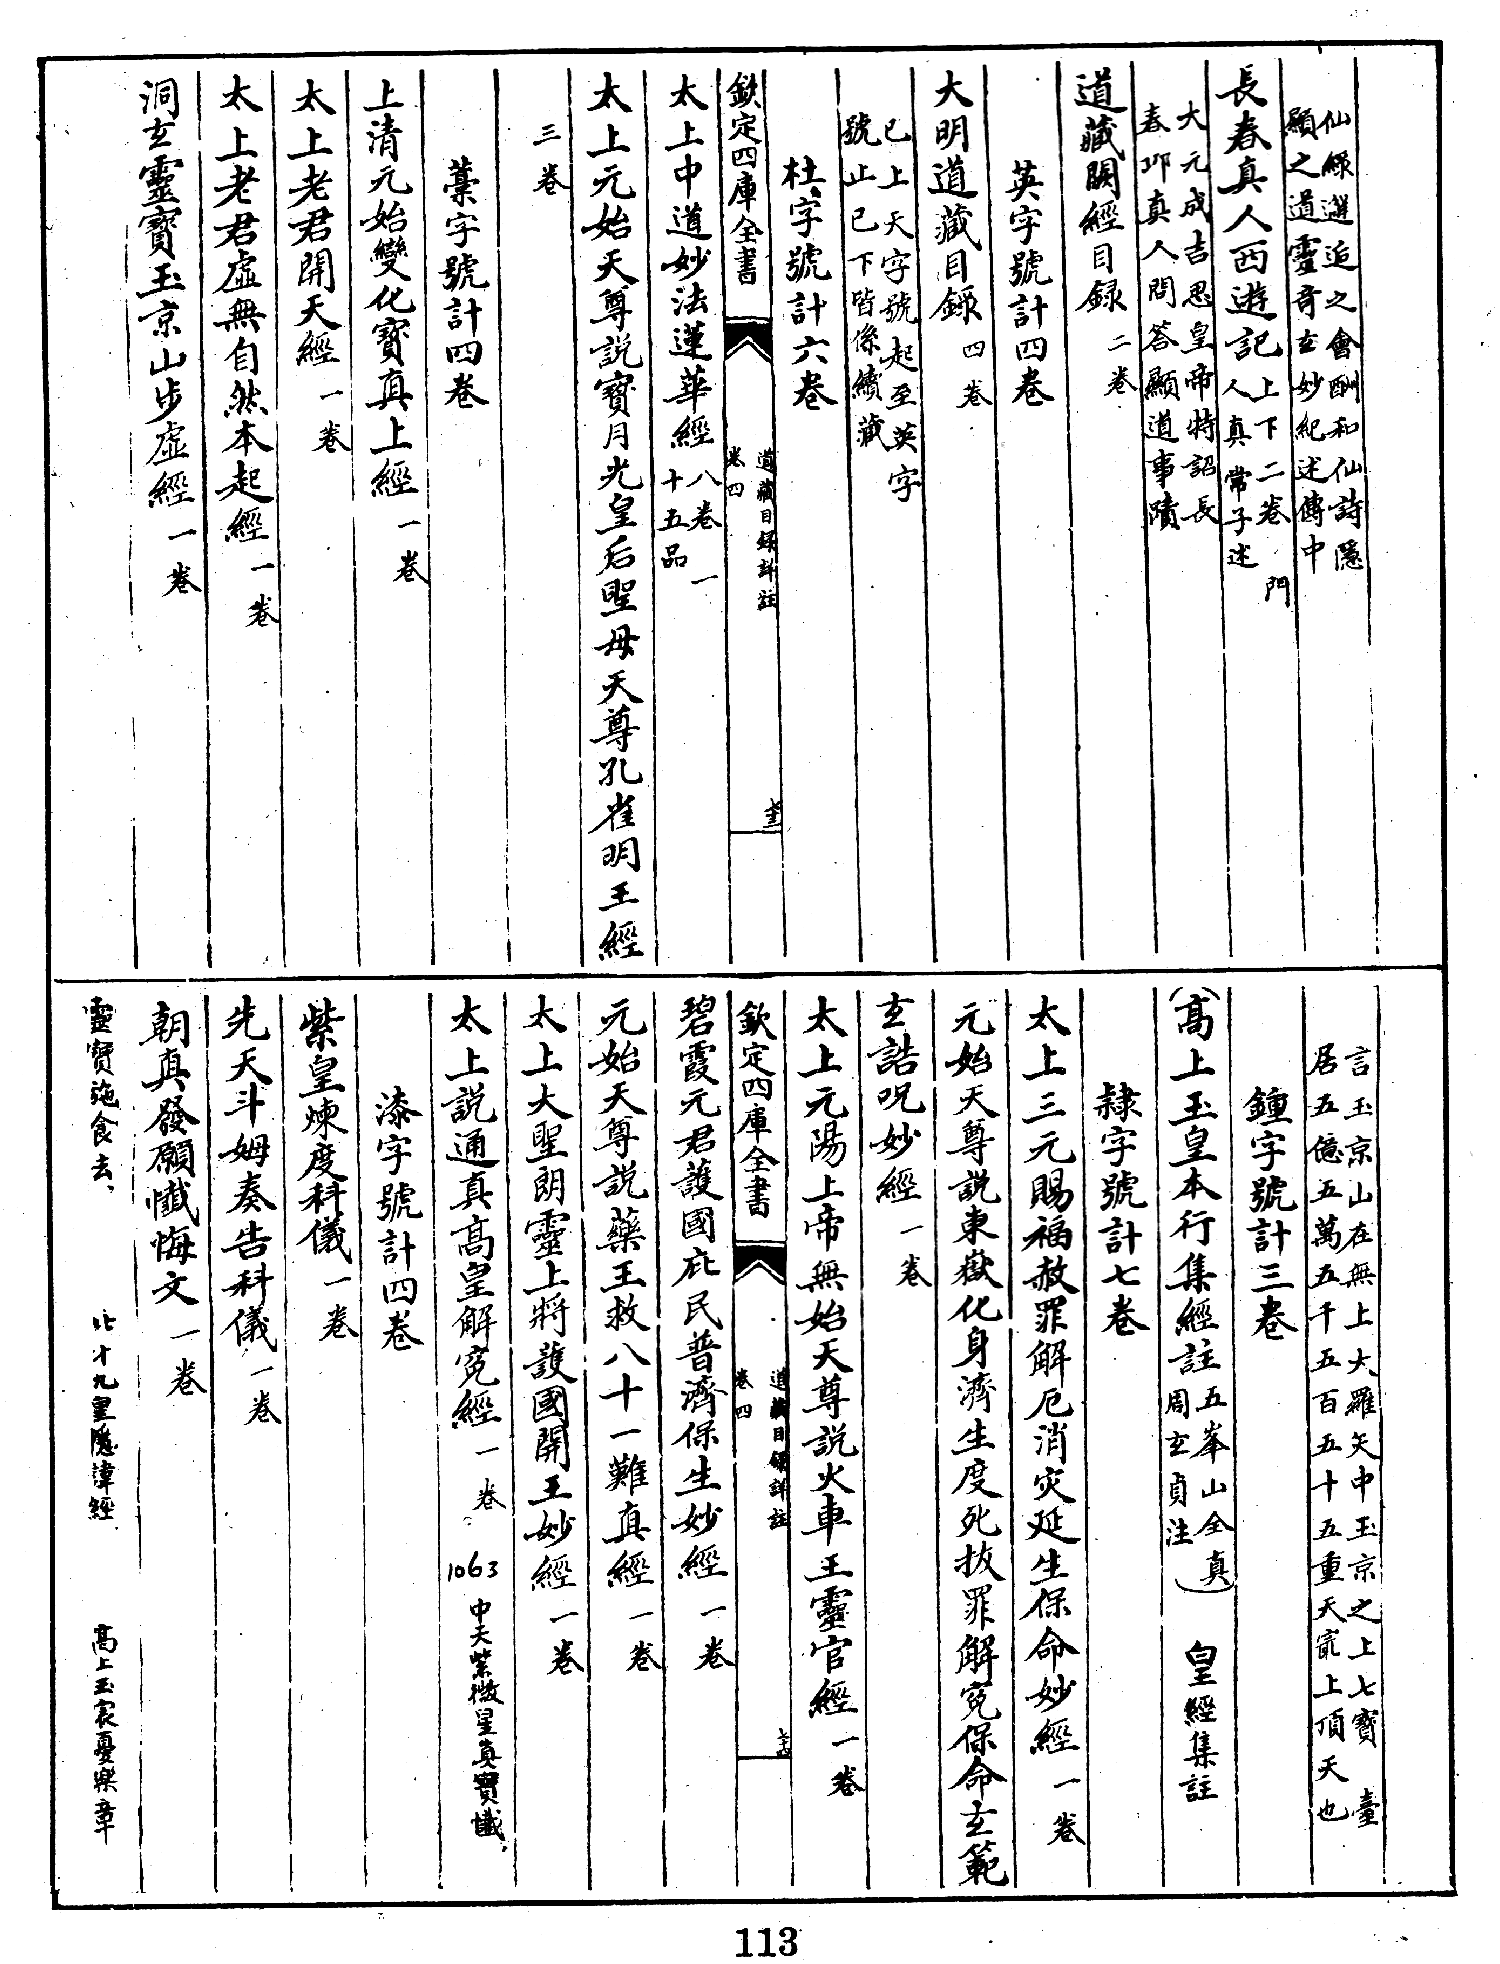 仙緣邂逅之會酬和仙詩隱
顯之道靈奇玄妙紀述傳中
長春真人西遊記 上下二卷 門人真常子述
大元成吉思皇帝特詔長
春邱真人問答顯道事蹟
道藏闕經目録 二卷
英字號計四卷
大明道藏目錄 四卷
已上天字號起至英字
號止已下皆係續藏
杜字號計六卷
欽定四庫全書
道藏目録詳註
卷四
太上中道妙法蓮華經 八卷一十五品
太上元始天尊説寶月光皇后聖母天尊孔雀明王經
三卷
藁字號計四卷
上清元始變化寶真上經 一卷
太上老君開天經 一卷
太上老君虛無自然本起經 一卷
洞玄靈寶玉京山步虛經 一卷
言玉京山在無上大羅天中玉京之上七寶臺
居五億五萬五千五百五十五重天㝡上頂天也
鐘字號計三卷
(高上玉皇本行集經註 五峯山全真周玄貞注) 皇經集註
隸字號計七卷
太上三元賜福赦罪解厄消灾延生保命妙經 一卷
元始天尊説東嶽化身濟生度死拔罪解寃保命玄範
玄誥呪妙經 一卷
太上元陽上帝無始天尊説火車王靈官經 一卷
欽定四庫全書
道藏目録詳註
卷四
碧霞元君護國庇民普濟保生妙經 一卷
元始天尊説藥王救八十一難真經 一卷
太上大聖朗靈上將護國開王妙經 一卷
太上説通真高皇解寃經 一卷 1063 中天紫微星真寶懺
漆字號計四卷
紫皇煉度科儀 一卷
先天斗姆奏告科儀 一卷
朝真發願懺悔文 一卷
靈寶施食去 九皇隱諱經 高上玉宸憂樂章
113